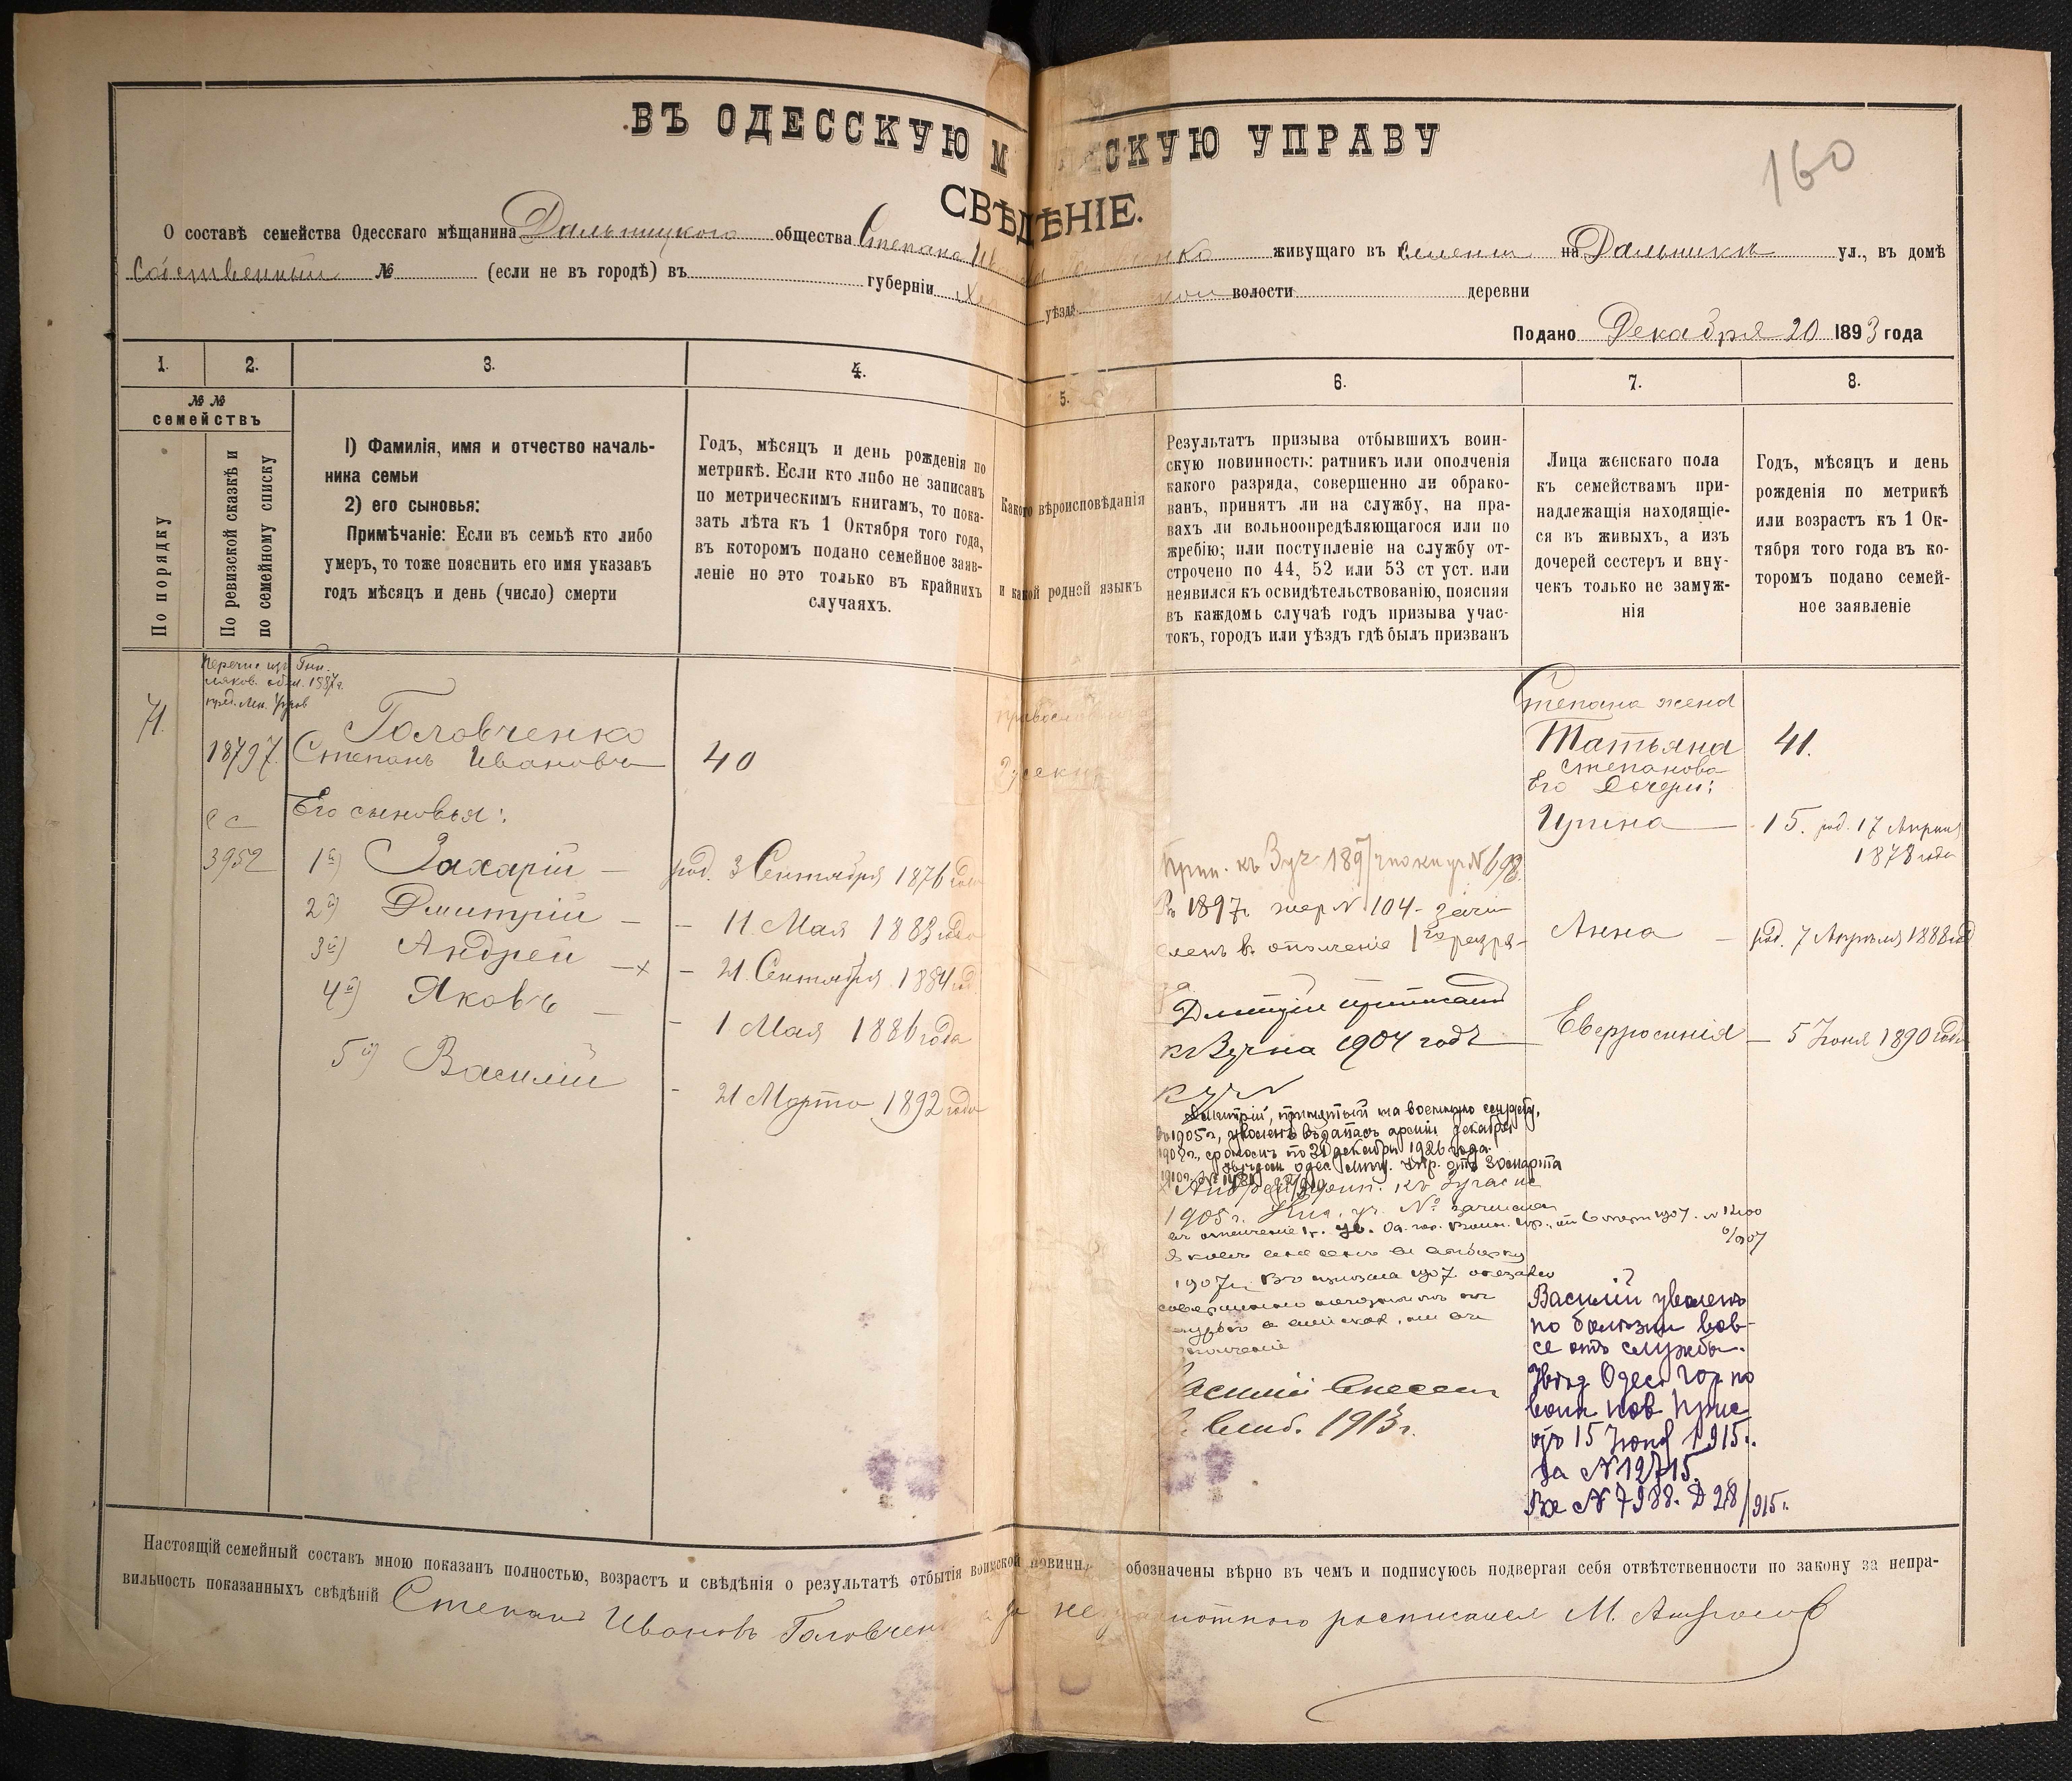 ВЪ ОДЕССКУЮ М СКУЮ УПРАВУ
160
СВѢДѢНІЕ.
О составѣ семейства Одесскаго мѣщанина Дальницкого общества Степана Ив нко живущаго въ селении на Дальникъ ул., въ домѣ
Собственный № (если не въ городѣ) въ губерніи уѣзда волости деревни
Подано Декабря 20 1893 года
1. 2. 3. 4. 5. 6. 7. 8.
№ №
семействъ
По порядку
По ревизской сказкѣ и
по семейному списку
1) Фамилія, имя и отчество началь-
ника семьи
2) его сыновья:
Примѣчаніе: Если въ семьѣ кто либо
умеръ, то тоже пояснить его имя указавъ
годъ мѣсяцъ и день (число) смерти
Годъ, мѣсяцъ и день рожденія по
метрикѣ. Если кто либо не записанъ
по метрическимъ книгамъ, то пока-
зать лѣта къ 1 Октября того года,
въ которомъ подано семейное заяв-
леніе но это только въ крайнихъ
случаяхъ.
Какого вѣроисповѣданія
и какой родной языкъ
Результатъ призыва отбывшихъ воин-
скую повинность: ратникъ или ополченія
какого разряда, совершенно ли обрако-
ванъ, принятъ ли на службу, на пра-
вахъ ли вольноопредѣляющагося или по
жребію; или поступленіе на службу от-
строчено по 44, 52 или 53 ст уст. или
неявился къ освидѣтельствованію, поясняя
въ каждомъ случаѣ годъ призыва учас-
токъ, городъ или уѣздъ гдѣ былъ призванъ
Лица женскаго пола
къ семействамъ при-
надлежащія находящіе-
ся въ живыхъ, а изъ
дочерей сестеръ и вну-
чекъ только не замуж-
нія
Годъ, мѣсяцъ и день
рожденія по метрикѣ
или возрастъ къ 1 Ок-
тября того года въ ко-
торомъ подано семей-
ное заявленіе
71.
18797.
3952
Головченко
Степанъ Ивановъ
40
Его сыновья:
1й) Захарій — род. 3 Сентября 1876 года
2й) Дмитрій — — 11 Мая 1883 года
3й) Андрей — х — 21 Сентября 1884 год
4й) Яковъ — — 1 Мая 1886 года
5й) Василій — 21 Марта 1892 года
православн
Прип. къ 3 уч. 1897
Въ 1897г. жер № 104 - зачи
сленъ въ ополченіе 1го разря-
да.
Дмитрій приписанъ
къ 3 уч на 1904 годъ
Дмитрій, принятый на военную службу,
въ 1905 г., уволенъ въ запасъ арміи декабря
срокомъ по 31 декабря 1926 года.
Одес от 30 марта
Андрей прип. къ 3 участ
1905 г. № зачислен
въ ополченіе 1907. № 1200
1907г. 1907 оказался
ополченіе
Василий внесен
1913 г.
Степана жена
Татьяна
Степанова
41.
Его Дочери:
Ирина — 15. род. 17 Апреля
1878 года
Анна — род. 7 Апреля 1888 год
Евфросинія — 5 Іюня 1890 года
Василий уволенъ
по болезни вов-
се отъ службы.
Увѣд Одес гор по
воин пов Прис
отъ 15 Іюня 1915 г.
за № 12715.
Вх № 7988. 28/915 г.
Настоящій семейный составъ мною показанъ полностью, возрастъ и свѣдѣнія о результатѣ отбытія воинской повинн обозначены вѣрно въ чемъ и подписуюсь подвергая себя отвѣтственности по закону за непра-
вильность показанныхъ свѣдѣній Степанъ Ивановъ Головчен а за неграмотного росписался М.